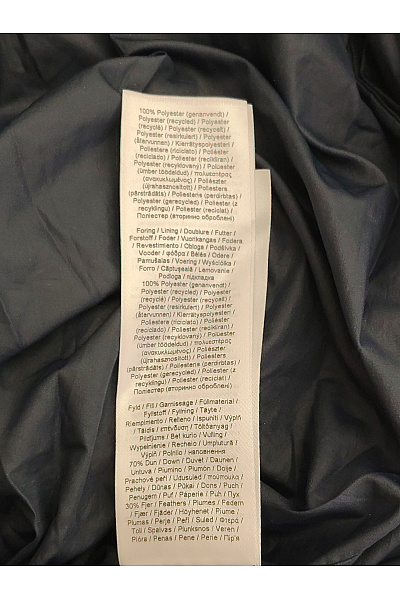 100% Polyester (genanvendt) /
Polyester (recycled) / Polyester
(recyclé) / Polyester (recycelt) /
Polyester (resirkulert) / Polyester
(återvunnen) / Kierrätyspolyesteri /
Poliestere (riciclato) / Poliéster
(reciclado) / Poliester (recikliran) /
Polyester (recyklovaný) / Polüester
(ümber töödeldud) / πολυεστέρας
(ανακυκλωμένος) / Poliészter
(újrahasznosított) / Poliesters
(pārstrādāts) / Poliesteris (perdirbtas) /
Polyester (gerecycled) / Poliester (z
recyklingu) / Poliester (reciclat) /
Поліестер (вторинно оброблені)
Foring / Lining / Doublure / Futter /
Forstoff / Foder / Vuorikangas / Fodera
/ Revestimiento / Obloga / Podšívka /
Vooder / φόδρα / Bélés / Odere /
Pamušalas / Voering / Wyściółka /
Forro / Căptușeală / Lemovanie /
Podloga / підкладка
100% Polyester (genanvendt) /
Polyester (recycled) / Polyester
(recyclé) / Polyester (recycelt) /
Polyester (resirkulert) / Polyester
(återvunnen) / Kierrätyspolyesteri /
Poliestere (riciclato) / Poliéster
(reciclado) / Poliester (recikliran) /
Polyester (recyklovaný) / Polüester
(ümber töödeldud) / πολυεστέρας
(ανακυκλωμένος) / Poliészter
(újrahasznosított) / Poliesters
(pārstrādāts) / Poliesteris (perdirbtas) /
Polyester (gerecycled) / Poliester (z
recyklingu) / Poliester (reciclat) /
Поліестер (вторинно оброблені)
Fyld / Fill / Garnissage / Füllmaterial /
Fyllstoff / Fyllning / Täyte /
Riempimento / Relleno / Ispuniti / Výplň
/ Täidis / επένδυση / Töltőanyag /
Pildījums / Bet kurio / Vulling /
Wypełnienie / Recheio / Umplutură /
Výplň / Polnilo / наповнення
70% Dun / Down / Duvet / Daunen /
Untuva / Piumino / Plumón / Dolje /
Prachové peří / Udusuled / πούπουλο /
Pehely / Dūnas / Pūkai / Dons / Puch /
Penugem / Puf / Páperie / Puh / Пух
30% Fjer / Feathers / Plumes / Federn
/ Fjær / Fjäder / Höyhenet / Piume /
Plumas / Perje / Peří / Suled / Φτερά /
Toll / Spalvas / Plunksnos / Veren /
Pióra / Penas / Pene / Perie / Пір'я